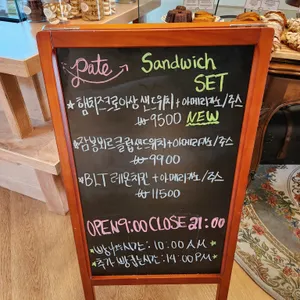 pate Sandwich
SET
★햄치즈크로와상샌드위치+아메리카노/주스
₩9500 NEW
★잠봉뵈르클럽샌드위치+아메리카노/주스
₩9900
★BLT 치킨+아메리카노/주스
₩11500
OPEN 9:00 CLOSE 21:00
★빵 시간: 10:00 AM★
★추가 빵 시간: 14:00 PM★